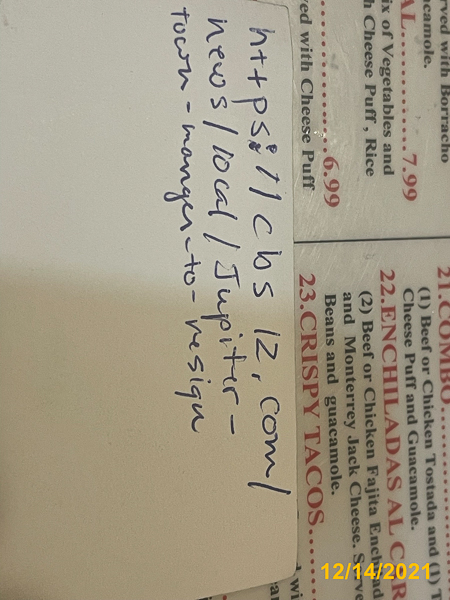 https://cbs12.com/
news/local/Jupiter-
town-manger-to-resign
rved with Borracho
acamole.
AL...........7.99
ix of Vegetables and
h Cheese Puff, Rice
...........6.99
ved with Cheese Puff
21.COMBO...........
(1) Beef or Chicken Tostada and (1) T
Cheese Puff and Guacamole.
22.ENCHILADAS AL C R
(2) Beef or Chicken Fajita Enchilad
and Monterrey Jack Cheese. Serve
Beans and guacamole.
23.CRISPY TACOS......
12/14/2021